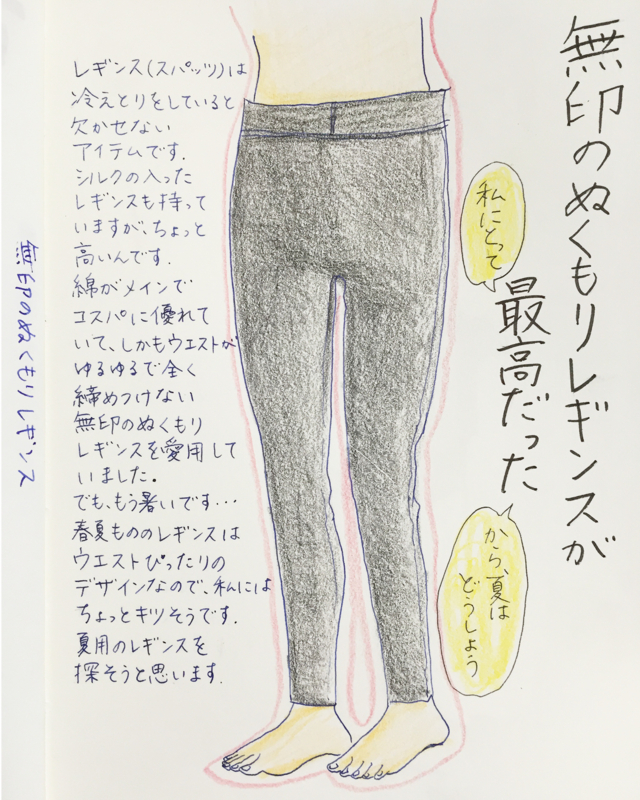 無印のぬくもりレギンスが
私にとって
最高だった
から、夏は
どうしよう
レギンス(スパッツ)は
冷えとりをしていると
欠かせない
アイテムです.
シルクの入った
レギンスも持って
いますが、ちょっと
高いんです.
綿がメインで
コスパに優れて
いて、しかもウエストが
ゆるゆるで全く
締めつけない
無印のぬくもり
レギンスを愛用して
いました.
でも、もう暑いです…
春夏もののレギンスは
ウエストぴったりの
デザインなので、私には
ちょっとキツそうです.
夏用のレギンスを
探そうと思います.
無印のぬくもりレギンス